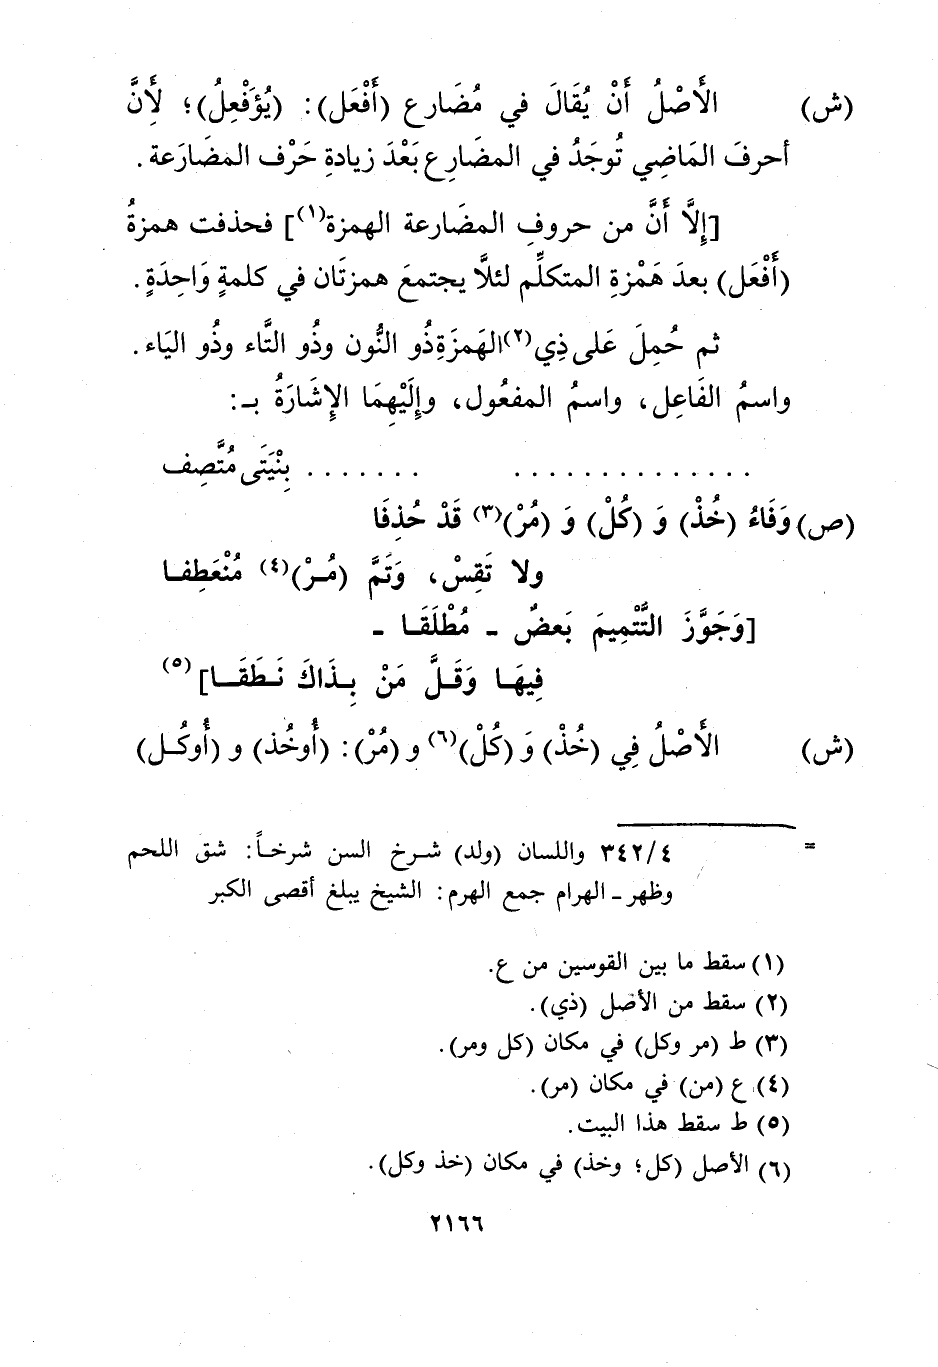 (ش) الأَصْلُ أَنْ يُقَالَ في مُضَارع (أَفْعَل): (يُؤَفْعِلُ)؛ لأَنَّ
أحرفَ المَاضِي تُوجَدُ في المضَارِع بَعْدَ زيادةِ حَرْف المضَارَعة.
[إِلاَّ أَنَّ من حروفِ المضَارعة الهمزة(١)] فحذفت همزةُ
(أَفْعَل) بعدَ هَمْزةِ المتكلِّم لئلاَّ يجتمعَ همزتَان في كلمةٍ وَاحِدَةٍ.
ثم حُمِلَ عَلى ذِي(٢) الهَمزَةِ ذُو النُّون وذُو التَّاء وذُو اليَاء.
واسمُ الفَاعِل، واسمُ المفعُول، وإِلَيْهِمَا الإِشَارَةُ بـ:
. . . . . . . . . . . . . . . . . . . . . بِنْيَتَى مُتَّصِف
(ص) وَفَاءُ (خُذْ) وَ (كُلْ) وَ (مُرْ)(٣) قَدْ حُذِفَا
ولا تَقِسْ، وَتَمَّ (مُـرْ)(٤) مُنْعَطِفـا
[وَجَوَّزَ التَّتْمِيمَ بَعضٌ - مُطْلَقَـا -
فِيهَـا وَقَـلَّ مَنْ بِـذَاكَ نَـطَقَـا](٥)
(ش) الأَصْلُ فِي (خُذْ) وَ (كُلْ)(٦) و (مُرْ): (أُوخُذ) و (أُوكُـل)
= ٣٤٢/٤ واللسان (ولد) شـرخ السن شرخـاً: شق اللحم
وظهر - الهرام جمع الهرم: الشيخ يبلغ أقصى الكبر
(١) سقط ما بين القوسين من ع.
(٢) سقط من الأصل (ذي).
(٣) ط (مر وكل) في مكان (كل ومر).
(٤) ع (من) في مكان (مر).
(٥) ط سقط هذا البيت.
(٦) الأصل (كل؛ وخذ) في مكان (خذ وكل).
٢١٦٦